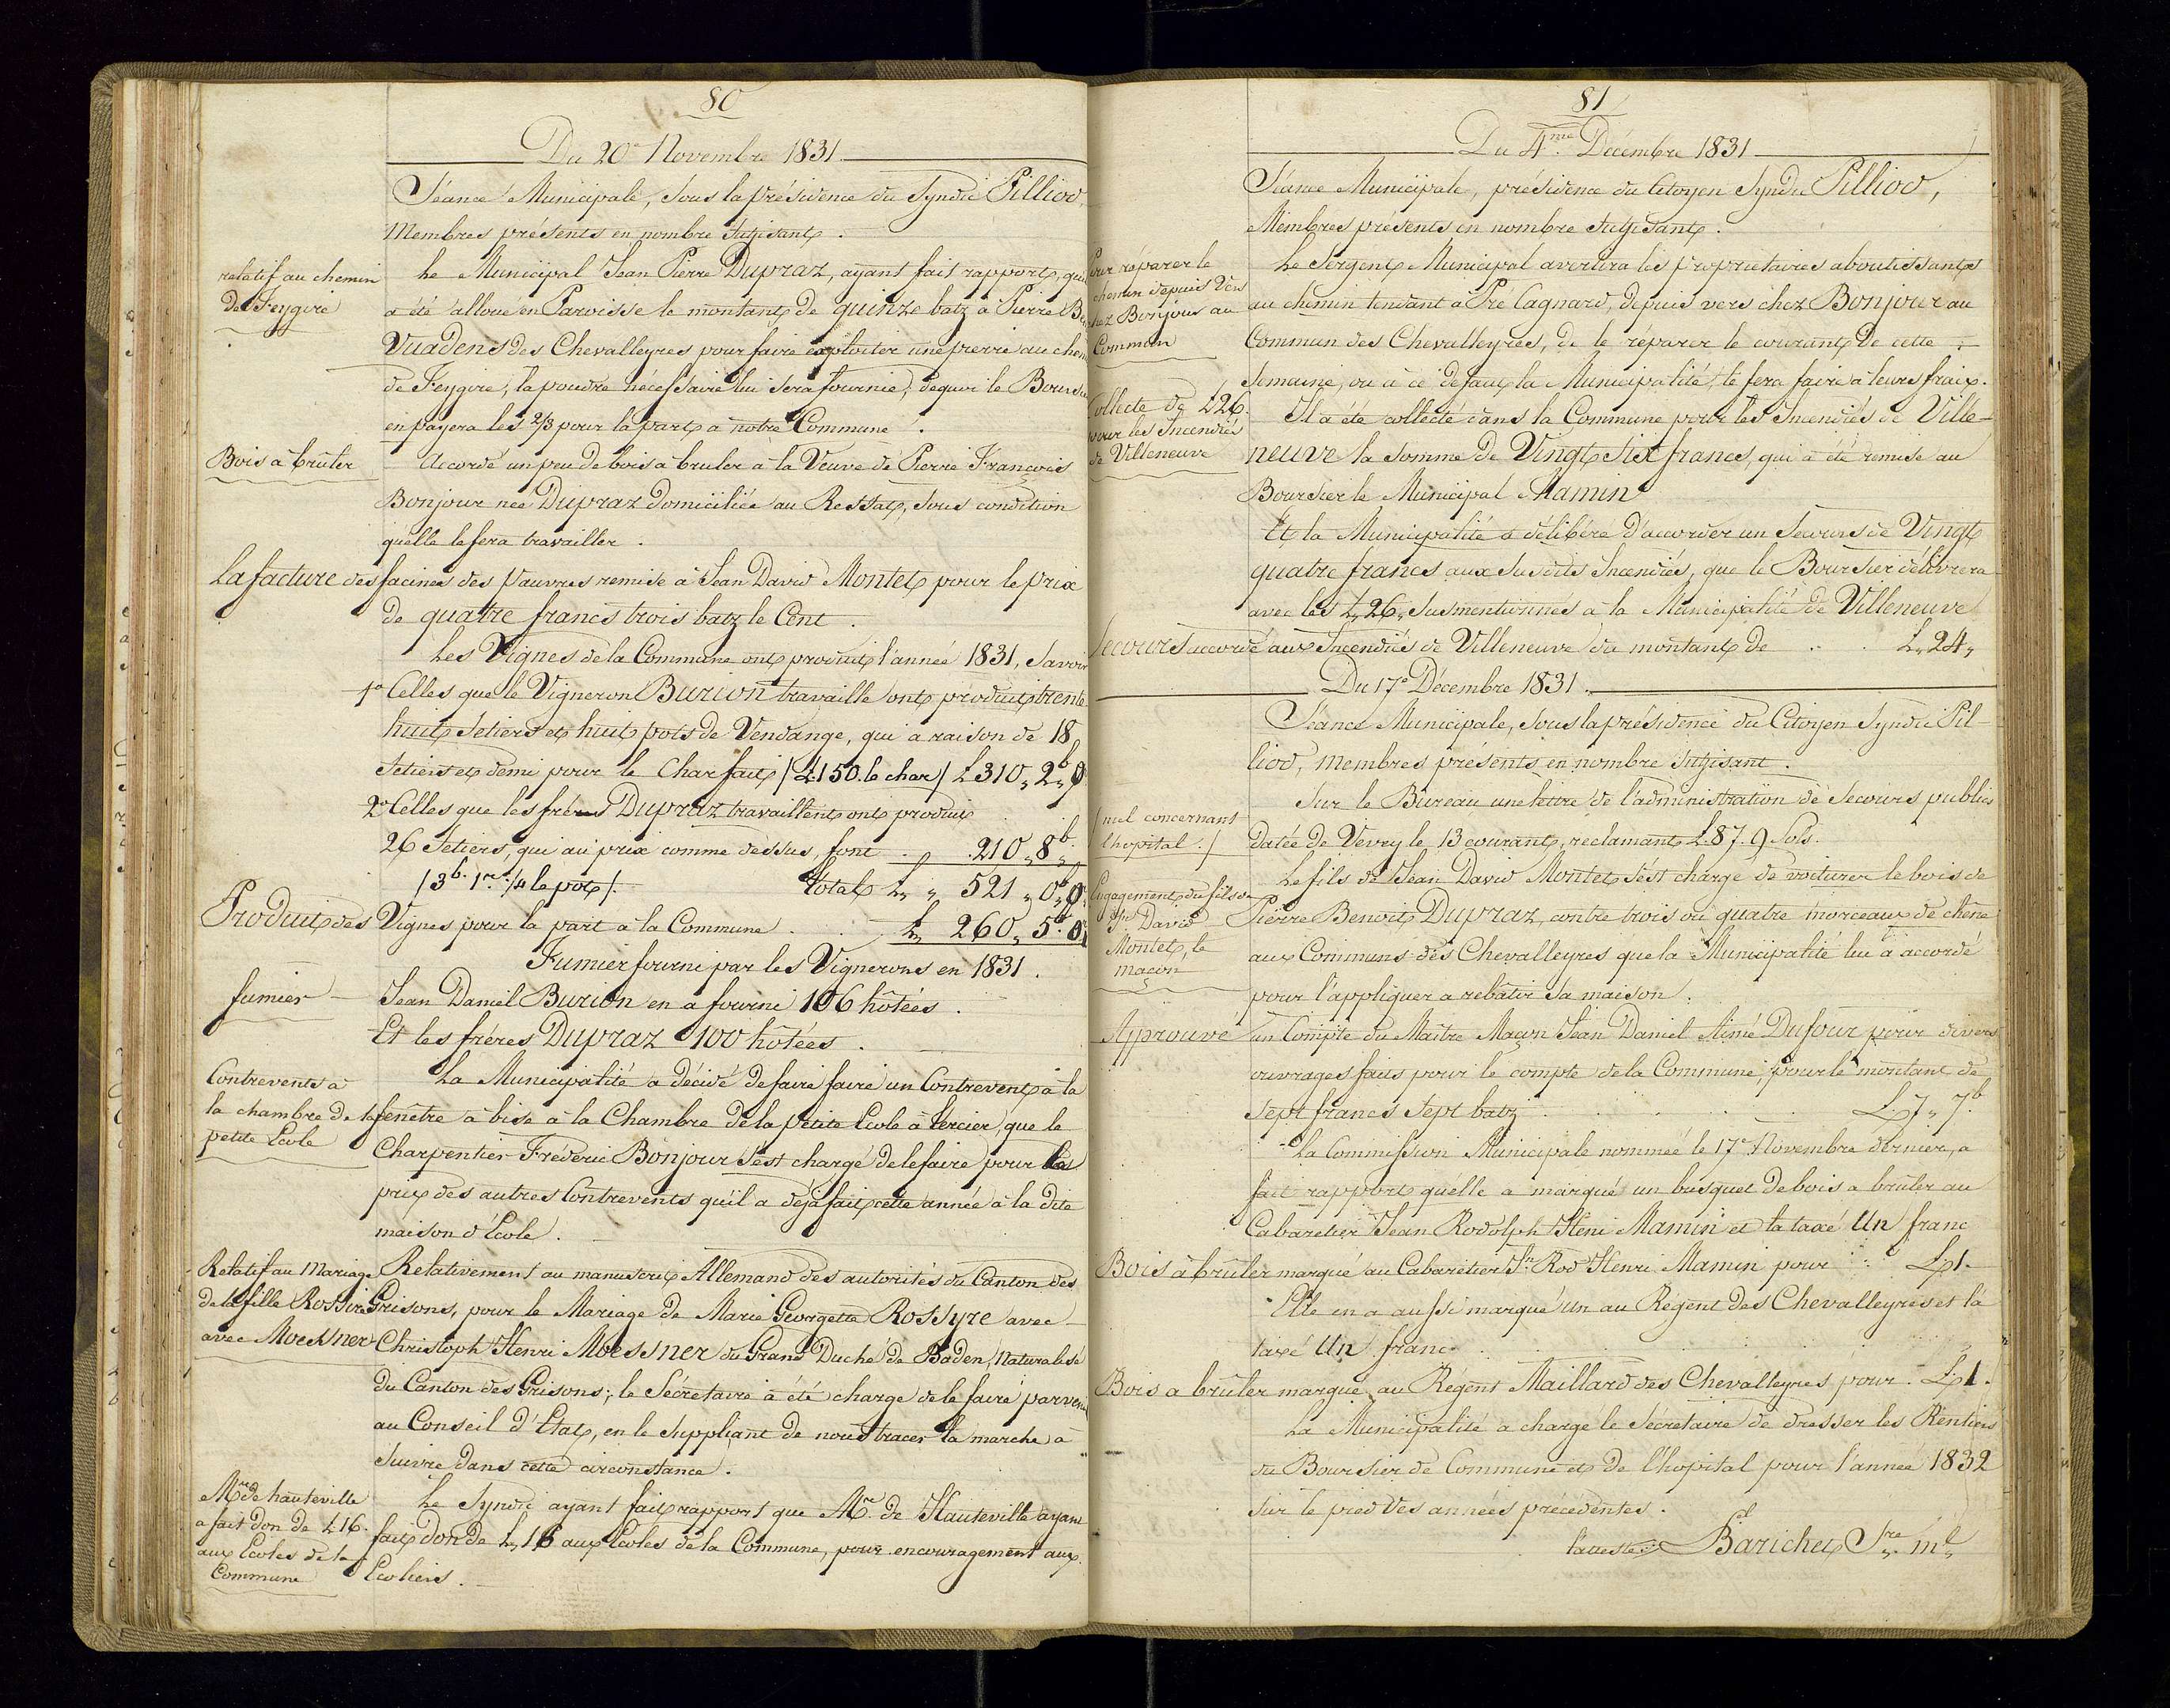 80
Du 20e Novembre 1831.
Séance Municipale, sous la présidence du Syndic Pilliod,
Membres présents en nombre sufisant.
relatif au chemin
De Feygire
Le Municipal Jean Pierre Dupraz, ayant fait rapport, qu'il
a été alloué en Paroisse le montant de quinze batz à Pierre
Vuadens des Chevalleyres pour faire exploiter une pierre au chemin
de Feygire, la poudre nécessaire lui sera fournie, dequoi le Boursier
en payera les 2/3 pour la part a notre Commune.
Bois à brûler
Accordé un peu de bois à bruler à la Veuve de Pierre François
Bonjour née Dupraz domiciliée au Ressat, sous condition
qu'elle le fera travailler.
La facture des facines des pauvres remise à Jean David Montet pour le prix
de quatre francs trois batz le Cent.
Les Vignes de la Commune ont produit l'année 1831, Savoir
1o Celles que le Vigneron Burion travaille ont produit trente
huit Setiers et huit pots de Vendange, qui a raison de 18
Setiers et demi pour le Char fait / L150. le char / L310 „ 2b „ 0
2o Celles que les fréres Dupraz travaillent ont produit
26 Setiers, qui au prix comme dessus, font . 210 „ 8b „
/ 3b. 1r. 1/4 le pot / . Total L „ 521 „ 0 „ 0
Produit des Vignes pour la part à la Commune . . L 260 „ 5 . 0
Fumier fourni par les Vignerons en 1831.
fumier
Jean Daniel Burion en a fourni 106 hôtées.
Et les fréres Dupraz 100 hôtées.
Contrevents à
la chambre de la
petite Ecole
La Municipalité a décidé de faire faire un Contrevent à la
fenêtre à bise à la Chambre de la petite Ecole à Tercier, que le
Charpentier Fréderic Bonjour s'est chargé de le faire pour le
prix des autres Contrevents qu'il a déja fait cette année à la dite
maison d'Ecole.
Relatif au Mariage
de la fille Rossire
avec Moessner
Relativement au manuscrit Allemand des autorités du Canton des
Grisons, pour le Mariage de Marie Georgette Rossyre avec
Christoph Henri Moessner du Grand Duché de Baden, Naturalisé
du Canton des Grisons; le Sécretaire a été chargé de le faire parvenir
au Conseil d'Etat, en le suppliant de nous tracer la marche à
suivre dans cette circonstance.
Mr de hauteville
a fait don de L16.
aux Ecoles de la
Commune
Le Syndic ayant fait rapport que Mr. de Hauteville ayant
fait don de L„ 16 aux Ecoles de la Commune, pour encouragement aux
Ecoliers.
81
Du 4.me Décembre 1831
Séance Municipale, présidence du Citoyen Syndic Pilliod,
Membres présents en nombre sufisant.
Pour reparer le
chemin depuis Vers
chez Bonjour au
Commun
Le Sergent Municipal avertira les propriétaires aboutissants
au chemin tendant à Pré Cagnard, depuis vers chez Bonjour au
Commun des Chevalleyres, de le réparer le courant de cette
Semaine, ou à ce défaut la Municipalité le fera faire à leurs fraix.
Collecte de L26.
pour les Incendiés
de Villeneuve
Il a été collecté dans la Commune pour les Incendiés de Ville-
neuve la somme de Vingt Six francs, qui a été remise au
Boursier le Municipal Mamin
Et la Municipalité a délibéré d'accorder un secours de Vingt
quatre francs aux susdits Incendiés, que le Boursier délivrera
avec les L„ 26 „ susmentionnés à la Municipalité de Villeneuve
Secours accordé aux Incendiés de Villeneuve du montant de . . . L„ 24 „
Du 17e Décembre 1831.
Séance Municipale, sous la présidence du Citoyen Syndic Pil-
liod, membres présents en nombre sufisant.
/ nul concernant
l'hopital. /
Sur le Bureau une lettre de l'administration de secours publics
datée de Vevey le 13 courant, réclamant L.87.9 Sols.
Engagement du fils de
Jn David
Montet, le
maçon
Le fils de Jean David Montet s'est chargé de voiturer le bois de
Pierre Benoit Dupraz, contre trois ou quatre morceaux de chêne
aux Communs des Chevalleyres que la Municipalité lui a accordé
pour l'appliquer a rebâtir sa maison.
Approuvé un Compte du Maître Maçon Jean Daniel Aimé Dufour pour divers
ouvrages faits pour le compte de la Commune, pour le montant de
sept francs sept batz . . . . L 7 „ 7b
La Commission Municipale nommée le 17e Novembre dernier, a
fait rapport qu'elle a marqué un busquet de bois a brûler au
Cabaretier Jean Rodolph Heni Mamin et la taxé Un franc
Bois à brûler marqué au Cabarétier Jn Rod Henri Mamin pour . L 1.
Elle en a aussi marqué un au Regent des Chevalleyres et la
taxé Un franc
Bois a brûler marqué au Régent Maillard des Chevalleyres pour . L 1.
La Municipalité a chargé le Sécretaire de dresser les Rentiers
du Boursier de Commune et de l'hopital pour l'année 1832
sur le pied des années précédentes.
l'atteste Barichet Sre. ml